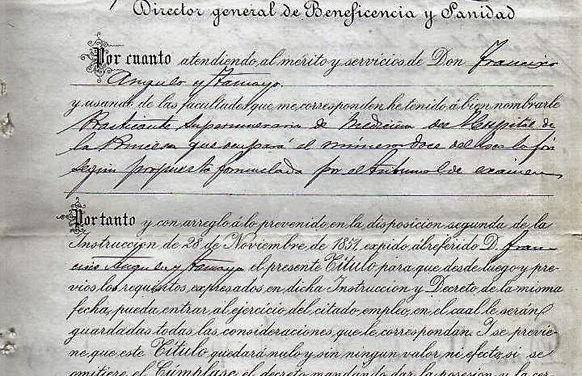 Director general de Beneficencia y Sanidad
Por cuanto atendiendo al mérito y servicios de Don Francisco
Angulo y Tamayo
y usando de las facultades que me corresponden he tenido á bien nombrarle
Practicante Supernumerario de Medicina del Hospital de
la Princesa que ocupará el número doce de la
según propuesta formulada por el tribunal de examen
Por tanto y con arreglo á lo prevenido en la disposicion segunda de la
Instruccion de 28 de Noviembre de 1851, expido al referido D. Fran-
cisco Angulo y Tamayo el presente Título para que desde luego y pre-
vios los requisitos expresados en dicha Instruccion y Decreto de la misma
fecha, pueda entrar al ejercicio del citado empleo, en el cual le serán
guardadas todas las consideraciones que le correspondan. Y se previe-
ne que este Título quedará nulo y sin ningun valor ni efecto, si se
omitiere el Cúmplase el decreto mandando dar la posesion y la cer-